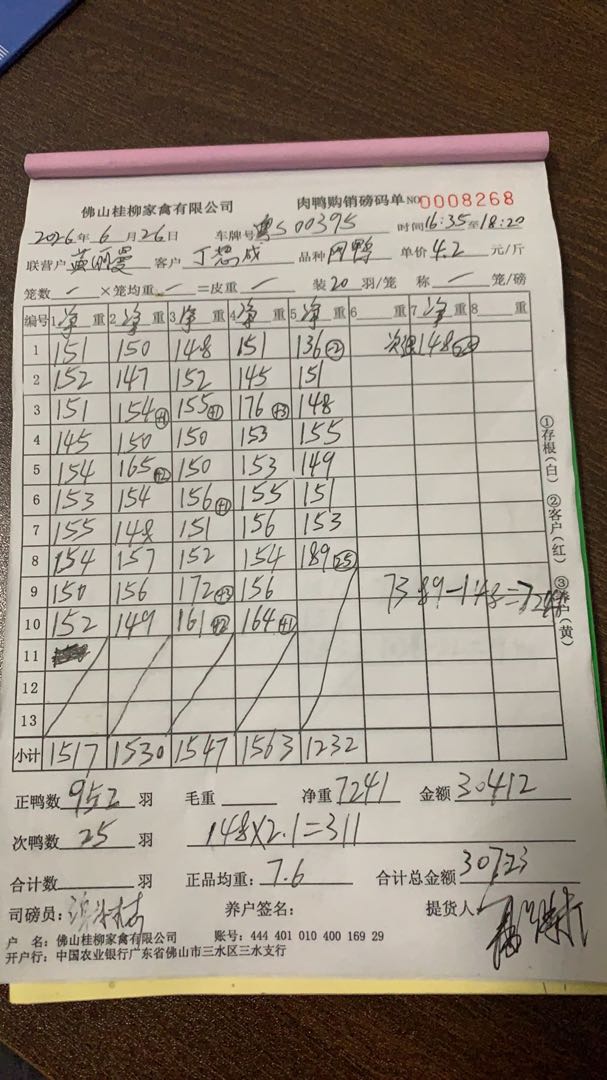 佛山桂柳家禽有限公司 肉鸭购销磅码单 NO 0008268
2026年6月26日 车牌号 粤S00395 时间16:35至18:20
联营户 客户 品种 单价 4.2 元/斤
笼数 一 ×笼均重 一 =皮重 一 装20羽/笼 称 一 笼/磅
编号 1净重 2净重 3净重 4净重 5净重 6 重 7净重 8 重
1 151 150 148 151 136 -2 次鸭148 25
2 152 147 152 145 151
3 151 154 +1 155 +1 176 +3 148
4 145 150 150 153 155
5 154 165 +2 150 153 149
6 153 154 156 +1 155 151
7 155 148 151 156 153
8 154 157 152 154 189 25
9 150 156 172 +3 156 7389-148=7241
10 152 149 161 +2 164 +1
11
12
13
小计 1517 1530 1547 1563 1232
正鸭数 952 羽 毛重 净重 7241 金额 30412
次鸭数 25 羽 148×2.1=311
合计数 羽 正品均重: 7.6 合计总金额 30723
司磅员: 养户签名: 提货人
户 名: 佛山桂柳家禽有限公司 账号: 444 401 010 400 169 29
开户行: 中国农业银行广东省佛山市三水区三水支行
①存根(白) ②客户(红) ③养户(黄)